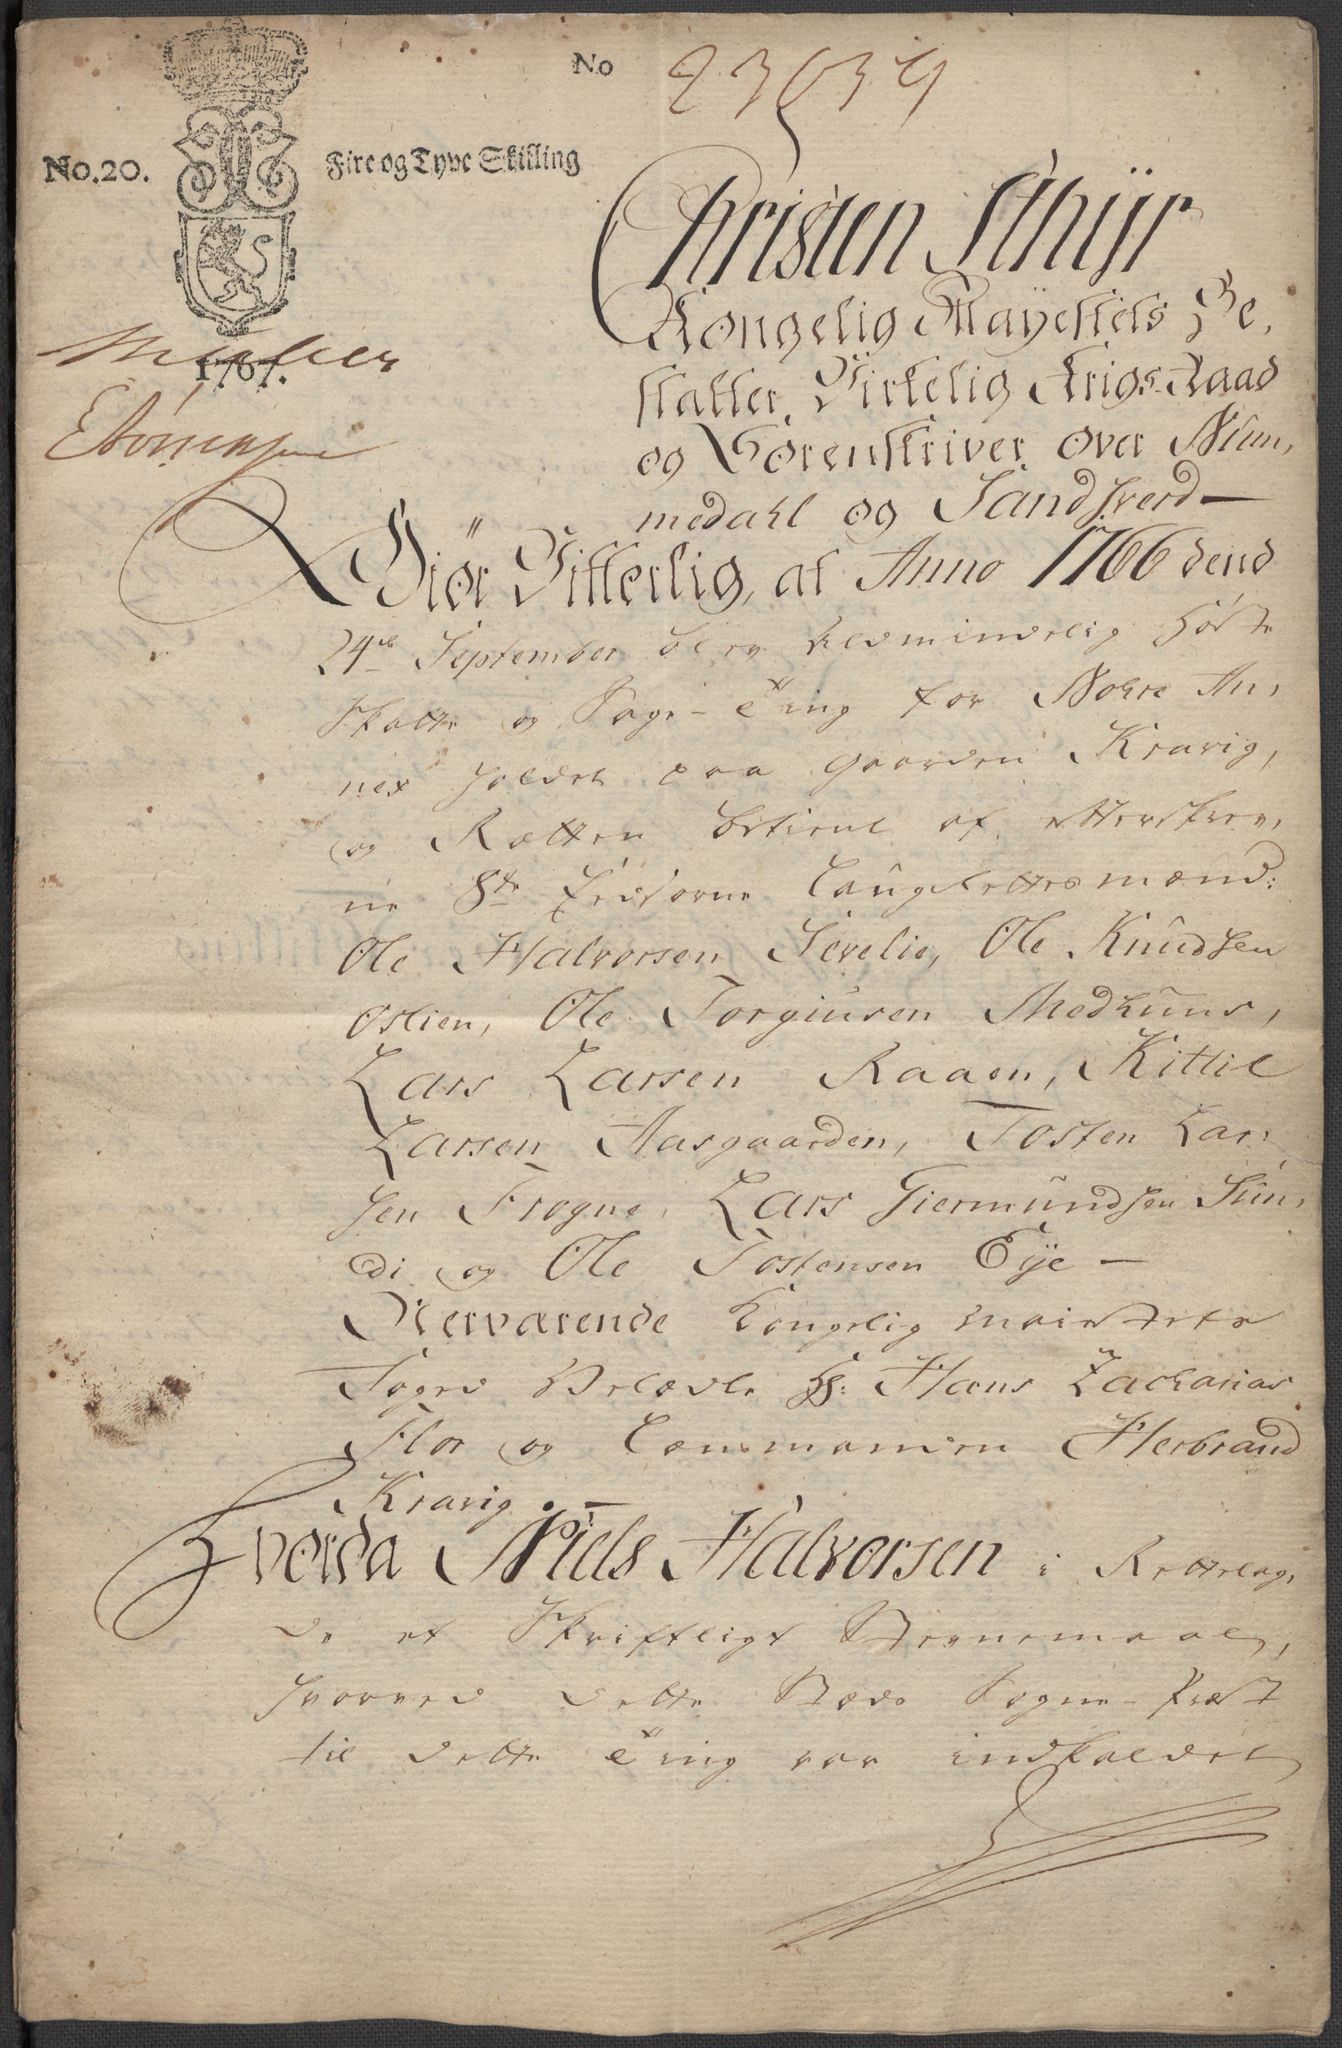 No 23634
No. 20. Fire og Tyve Skilling
1767.
Christen Sthyr
Kongelig Mayestets Be,
stalter Virkelig Krigs-Raad
og Sorenskriver over Num,
medahl og Sandsverd —
Giör Vitterlig, at Anno 1766 dend
24de September blev Almindelig Höst
Skatte og Sage-Ting for Nohre An,
nex holdet paa gaarden Kravig,
og Retten betient af efterskrev,
ne 8te Eedsorne Laugrettesmænd:
Ole Halvorsen Sevelie, Ole Knudsen
Oslien, Ole Torgiusen Medhuus,
Lars Larsen Raaen, Kittil
Larsen Aasgaarden, Tosten Lar,
sen Frogne, Lars Giermundsen Sun,
di og Ole Tostensen Eye —
Nerværende Kongelig Maiestets
Foged Velædle Hr: Hans Zacharias
Flor og Lensmanden Herbrand
Kravig. —
Hvorda Niels Halvorsen i Rettelag,
de et Skriftligt Stevnemaal,
hvorved dette Stæds Sogne-Præst
til dette Ting var indkaldet